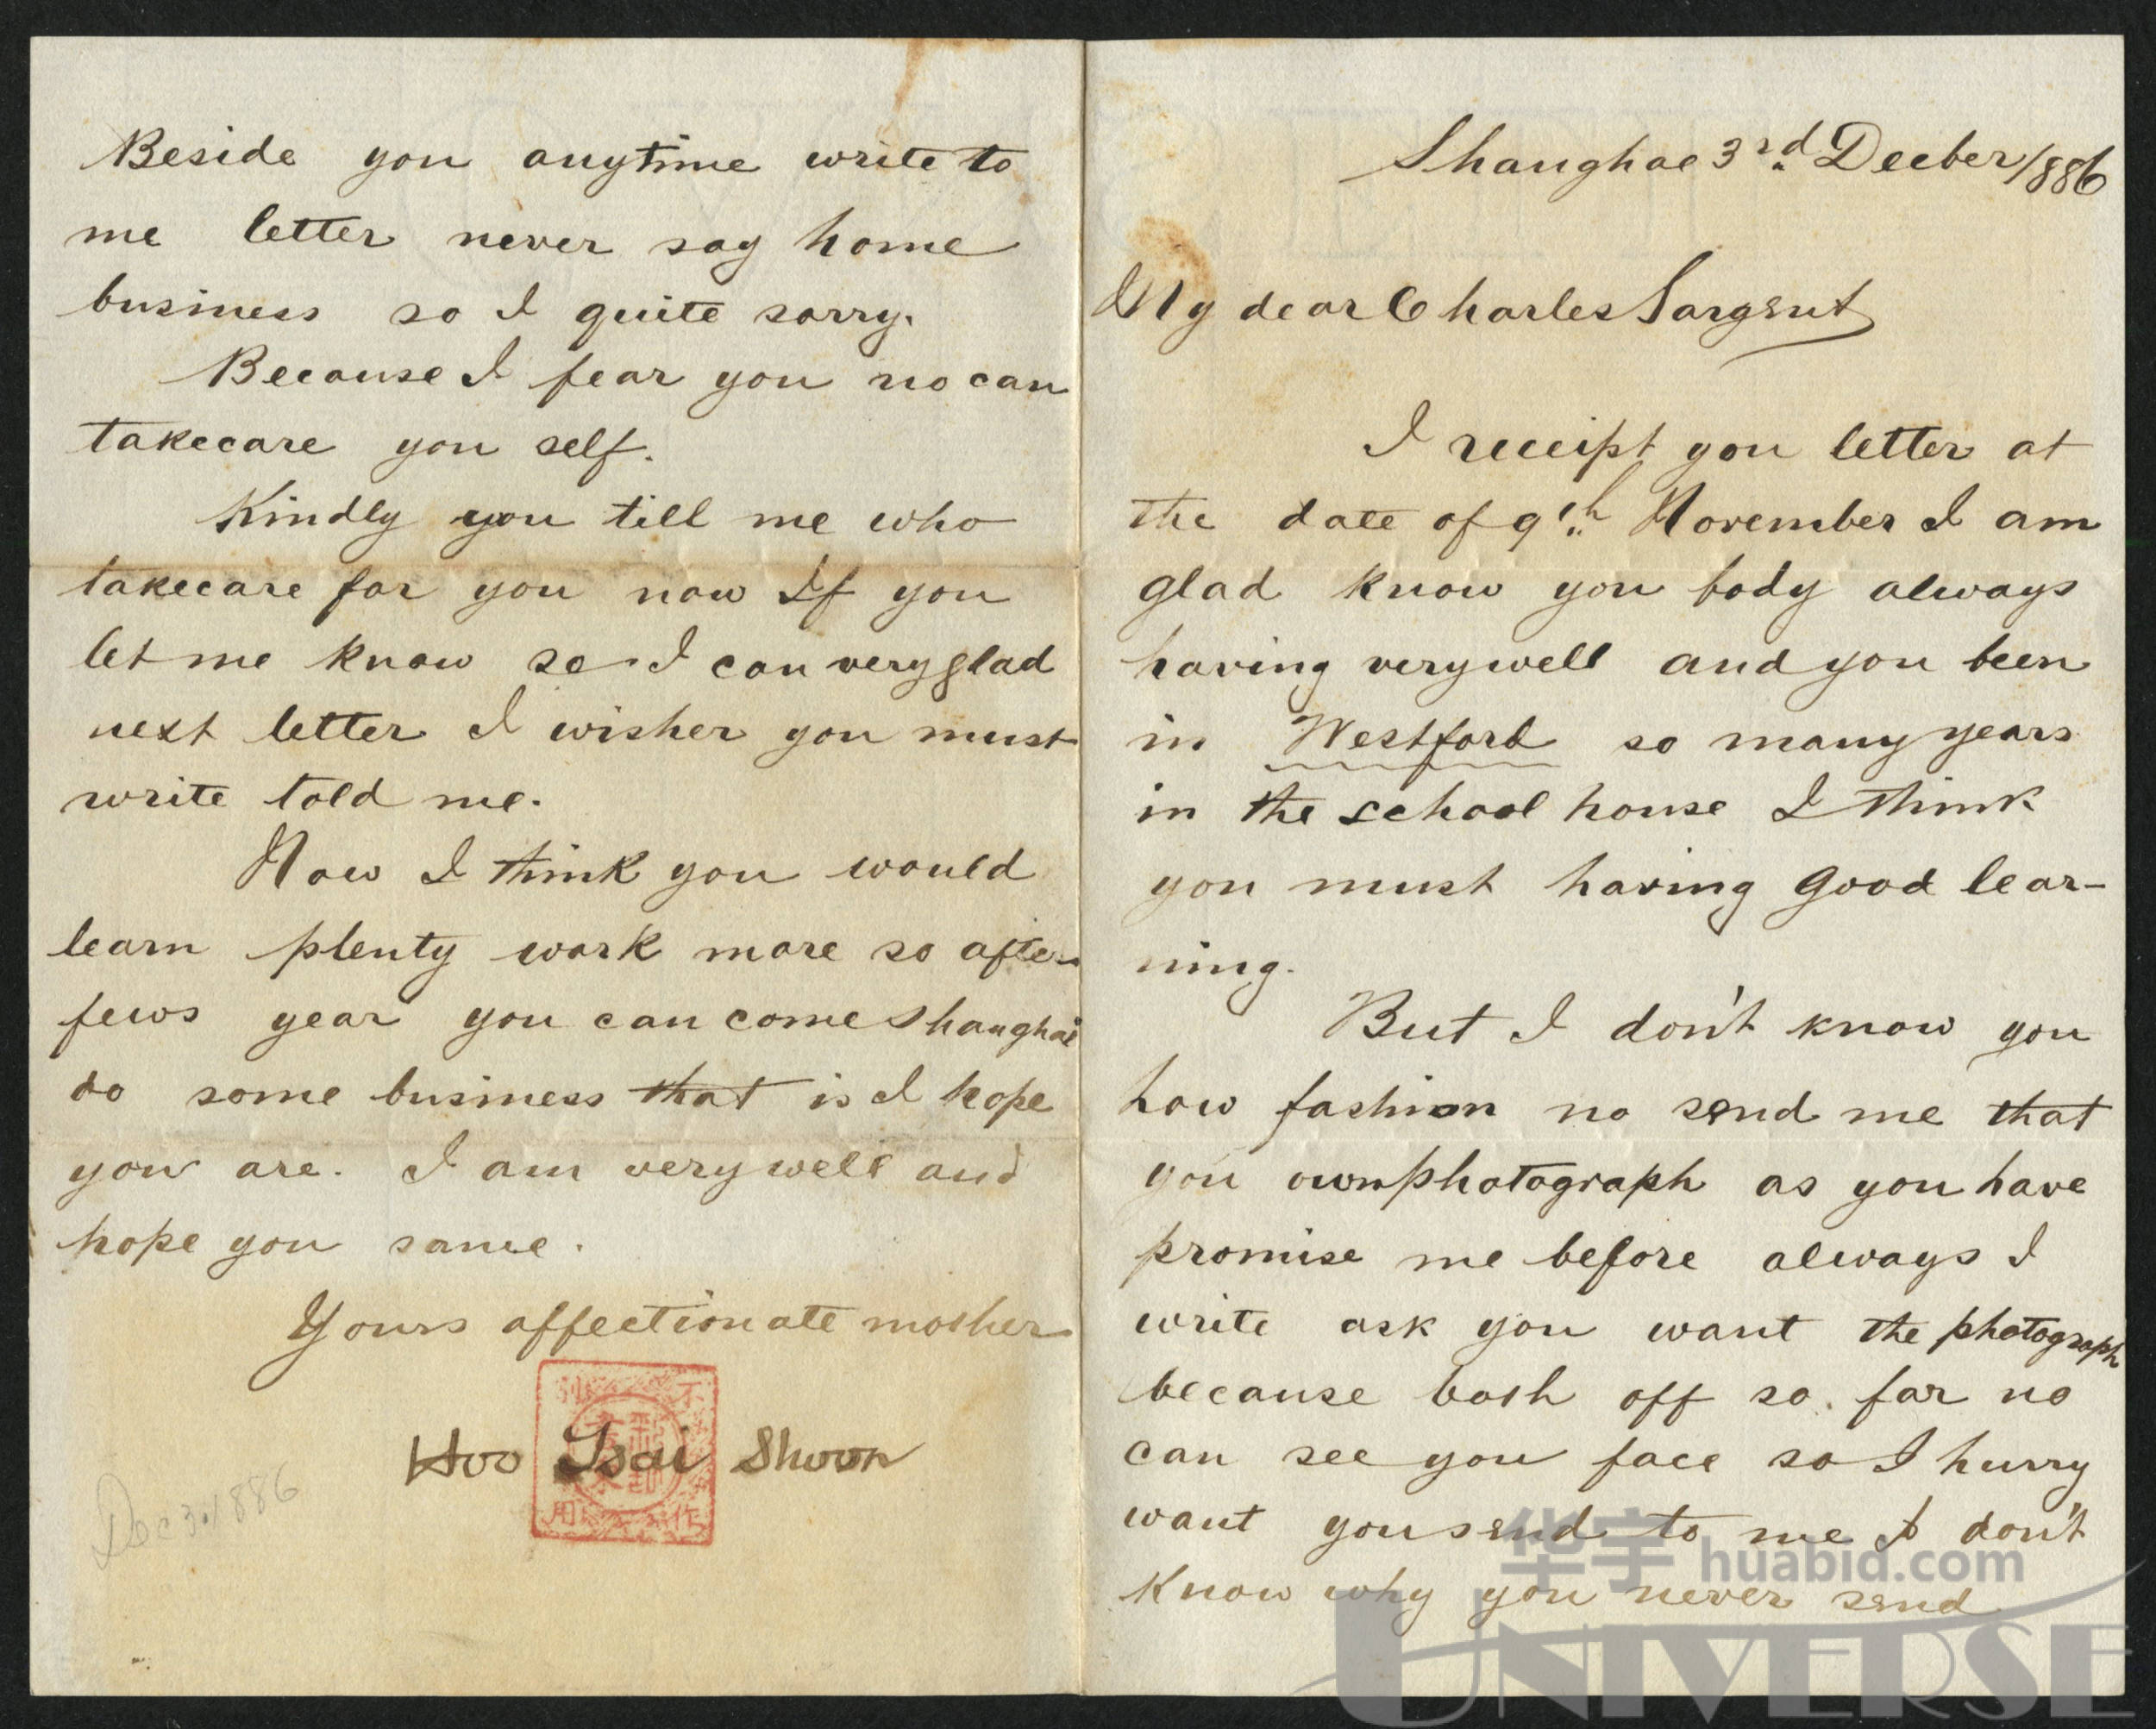 Shanghae 3rd Decber/1886
My dear Charles Sargent
I receipt you letter at
the date of 9th November I am
glad know you body always
having very well and you been
in Westford so many years
in the school house I think
you must having good lear-
ning.
But I don't know you
how fashion no send me that
you own photograph as you have
promise me before always I
write ask you want the photograph
because both off so far no
can see you face so I hurry
want you send to me I don't
know why you never send
Beside you anytime write to
me letter never say home
business so I quite sorry.
Because I fear you no can
takecare you self.
Kindly you till me who
takecare for you now If you
let me know so I can very glad
next letter I wisher you must
write told me.
Now I think you would
learn plenty work more so after
fews year you can come Shanghai
do some business that is I hope
you are. I am very well and
hope you same.
Yours affectionate mother
Hoo Tsai Shoon
不
作
用
Dec 3. 1886
华宇 huabid.com
UNIVERSE